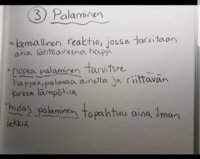 ③ Palaminen
- kemallinen reaktio, jossa tarvitaan
aina lähtöaineena happi
- nopea palaminen tarvitsee
happea, palavaa ainetta ja riittävän
korkea lämpötila
- hidas palaminen tapahtuu aina ilman
liekkiä